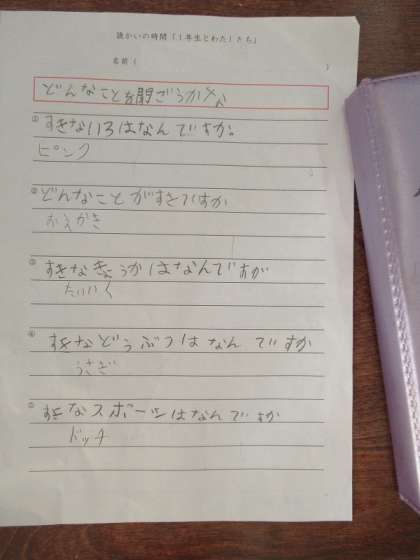 読かいの時間「1年生とわたしたち」
名前( )
どんなことを聞こうかな
① すきないろはなんですか。
ピンク
② どんなことがすきですか
おえかき
③ すきなきょうかはなんですが
たいいく
④ すきなどうぶつはなんですか
うさぎ
⑤ すきなスポーツはなんですか
ドッチ